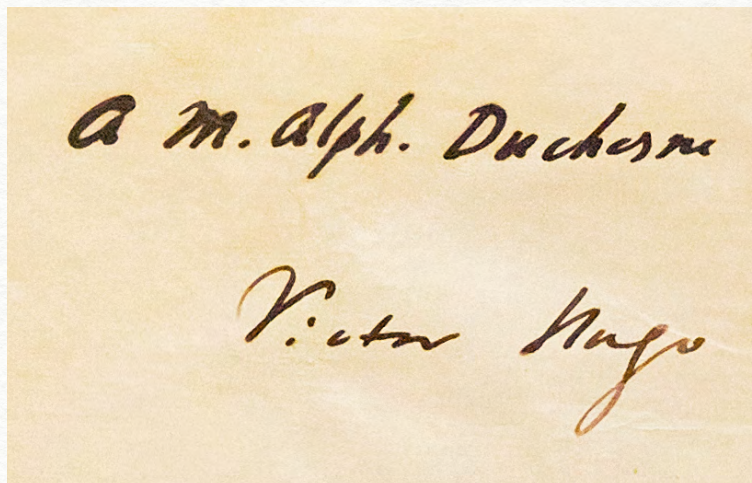 A M. Alph. Duchesne
Victor Hugo